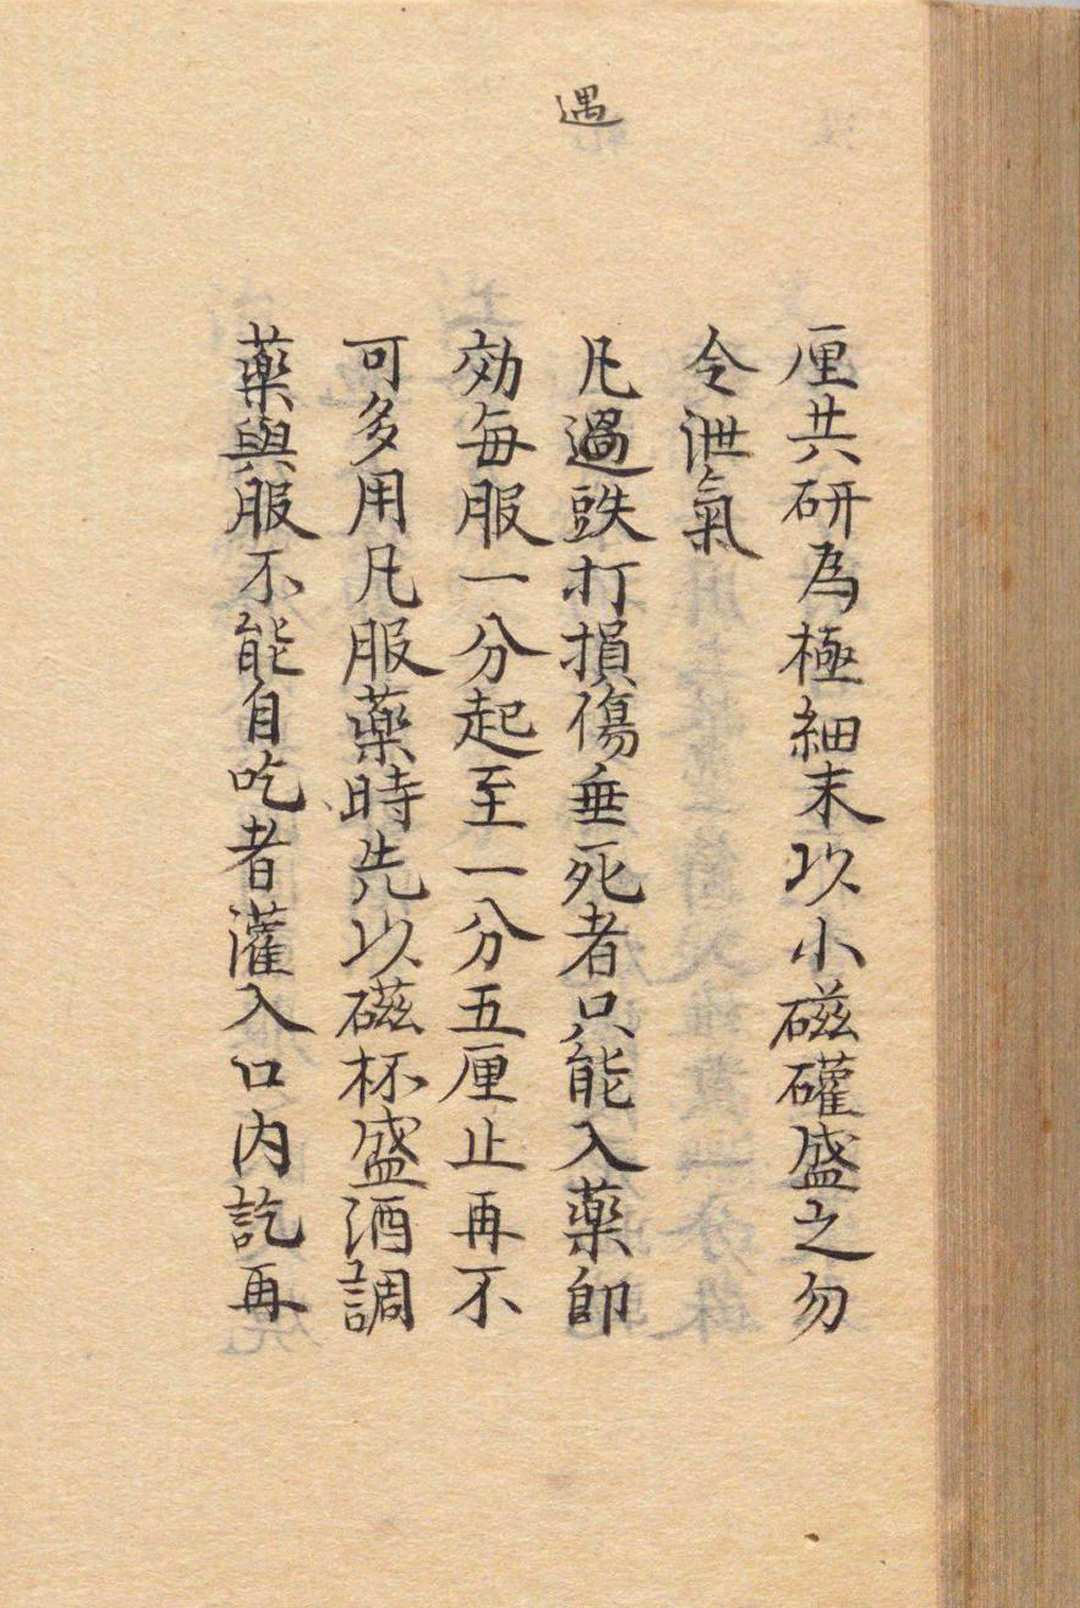 遇
厘共硏為極細末以小磁礶盛之勿
令泄氣
凡過跌打損傷垂死者只能入藥卽
効每服一分起至一分五厘止再不
可多用凡服藥時先以磁杯盛酒調
藥與服不能自吃者灌入口內訖再